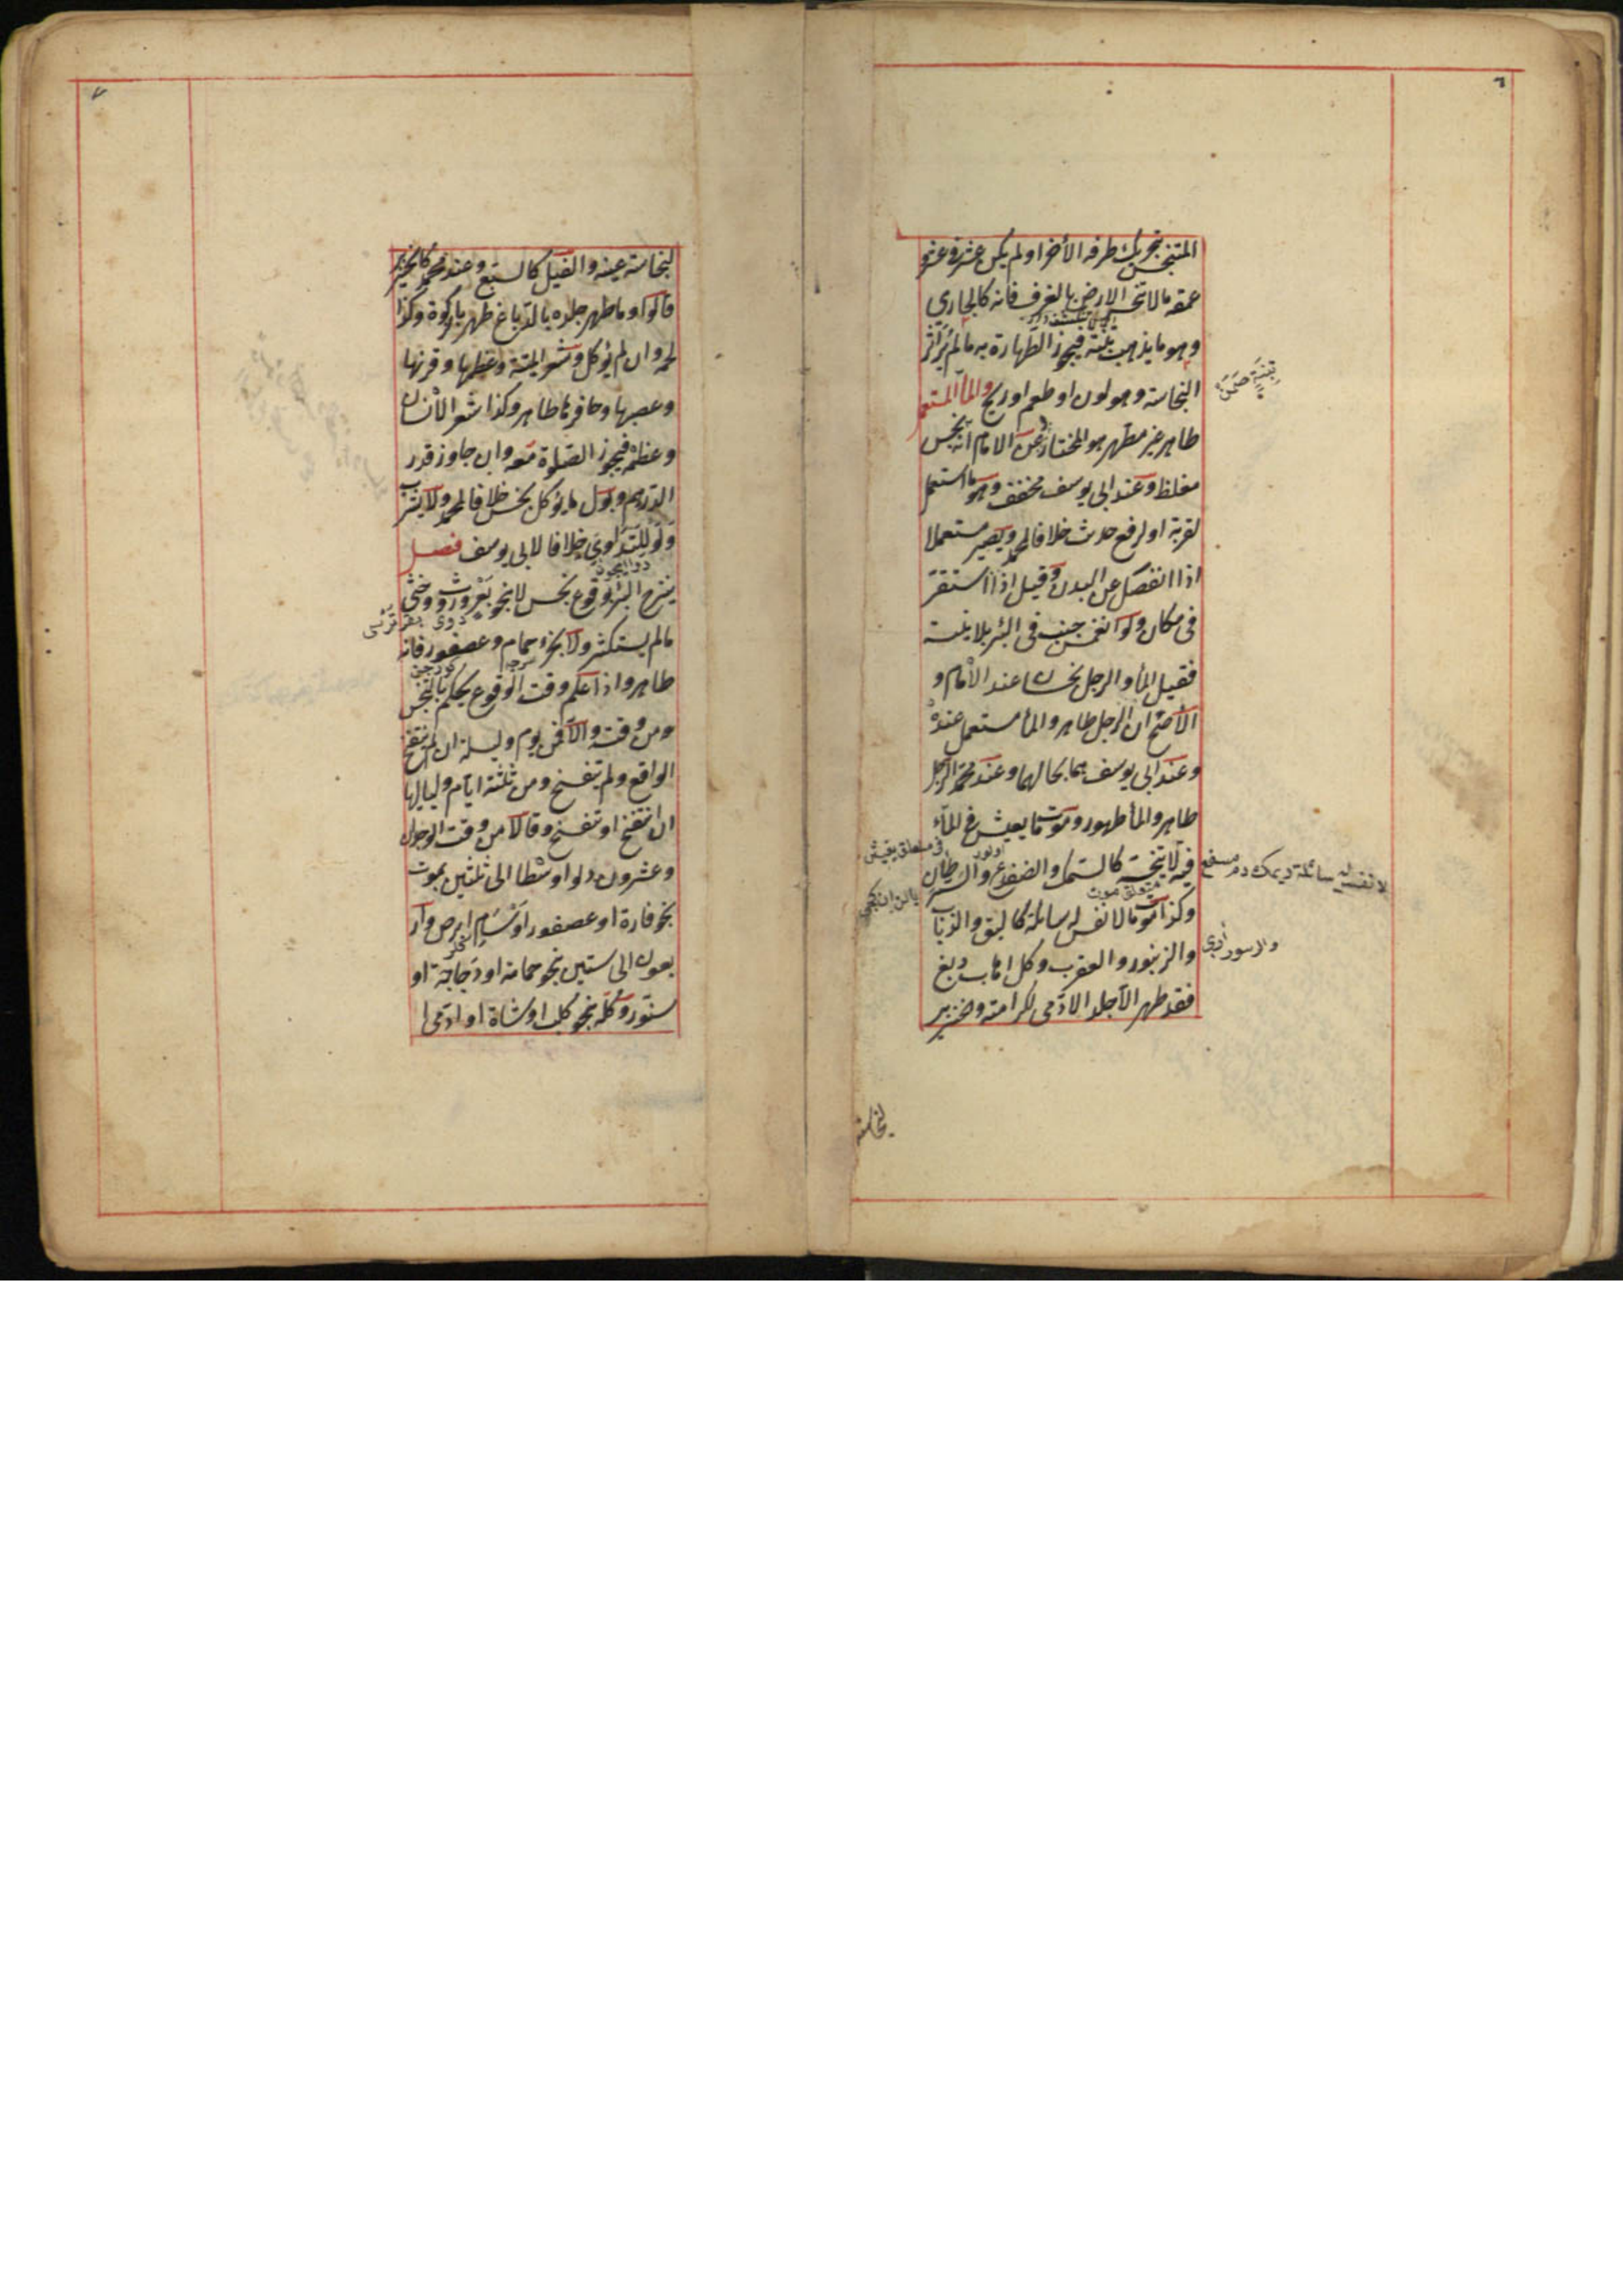 ٦
المتنجس بتحريك طرفه الأخر او لم يكن عشرا في عشر و
عمقه مالا تنحسر الارض بالغرف فانه كالجاري
وهو ما يذهب بتبنة فيجوز الطهارة به مالم ير اثر
النجاسة وهو لون او طعم او ريح والمأ المستعمل
طاهر غير مطهر هو المختار وعن الامام انه نجس
مغلظ وعند ابى يوسف مخفف وهو ما استعمل
لقربة او لرفع حدث خلافا لمحمد ويصير مستعملا
اذا انفصل عن البدن وقيل اذا استقر
فى مكان ولو انغمس جنب فى البئر بلا نية
فقيل المأ والرجل نجسان عند الأمام و
الأصح ان الرجل طاهر والمأ مستعمل عنده
وعند ابى يوسف هما بحالهما وعند محمد الرجل
طاهر والمأ طهور وموت ما يعيش فى المآء
فيه لا ينجسه كالسمك والضفدع والسرطان
وكذا موت مالا نفس له سائلة كالبق والذباب
والزنبور والعقرب وكل اهاب دبغ
فقد طهر الا جلد الادمى لكرامته والخنزير
لا نفس له سائلة ديمك دم مسفح
متعلق موت
لنجاسة
٧
لنجاسة عينه والفيل كالسبع وعند محمد كالخنزير
قالوا وما طهر جلده بالدباغ طهر بالزكوة وكذا
لحمه وان لم يؤكل وشعر الميتة وعظمها وقرنها
وعصبها وحافرها طاهر وكذا شعر الأنسان
وعظمه فيجوز الصلوة معه وان جاوز قدر
الدرهم وبول ما يؤكل نجس خلافا لمحمد ولا يشرب
ولو للتداوى خلافا لابى يوسف فصل
ينزح البئر لوقوع نجس لا بنحو بعر وروث وخثى
مالم يستكثر ولا بخرء حمام وعصفور فانه
طاهر واذا علم وقت الوقوع يحكم بالتنجس
من وقته والا فمن يوم وليلة ان لم ينتفخ
الواقع ولم يتفسخ ومن ثلثة ايام ولياليها
ان انتفخ او تفسخ وقالا من وقت الوجدان
وعشرون دلوا وسطا الى ثلثين بموت
نحو فارة او عصفور او سام ابرص وار
بعون الى ستين بنحو حمامة او دجاجة او
سنور وكله بنحو كلب او شاة او ادمى ا